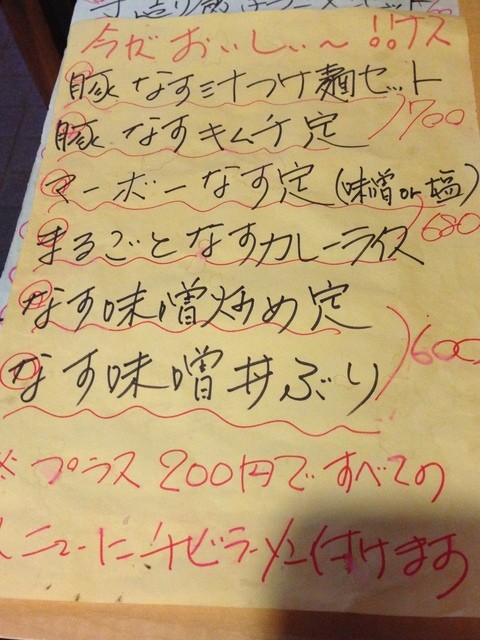 今がおいしぃ〜!!ナス
豚なす汁つけ麺セット
豚なすキムチ定
700
マーボーなす定(味噌or塩)
まるごとなすカレーライス
680
なす味噌炒め定
なす味噌丼ぶり
600
※プラス200円ですべての
メニューにチビラーメン付けます